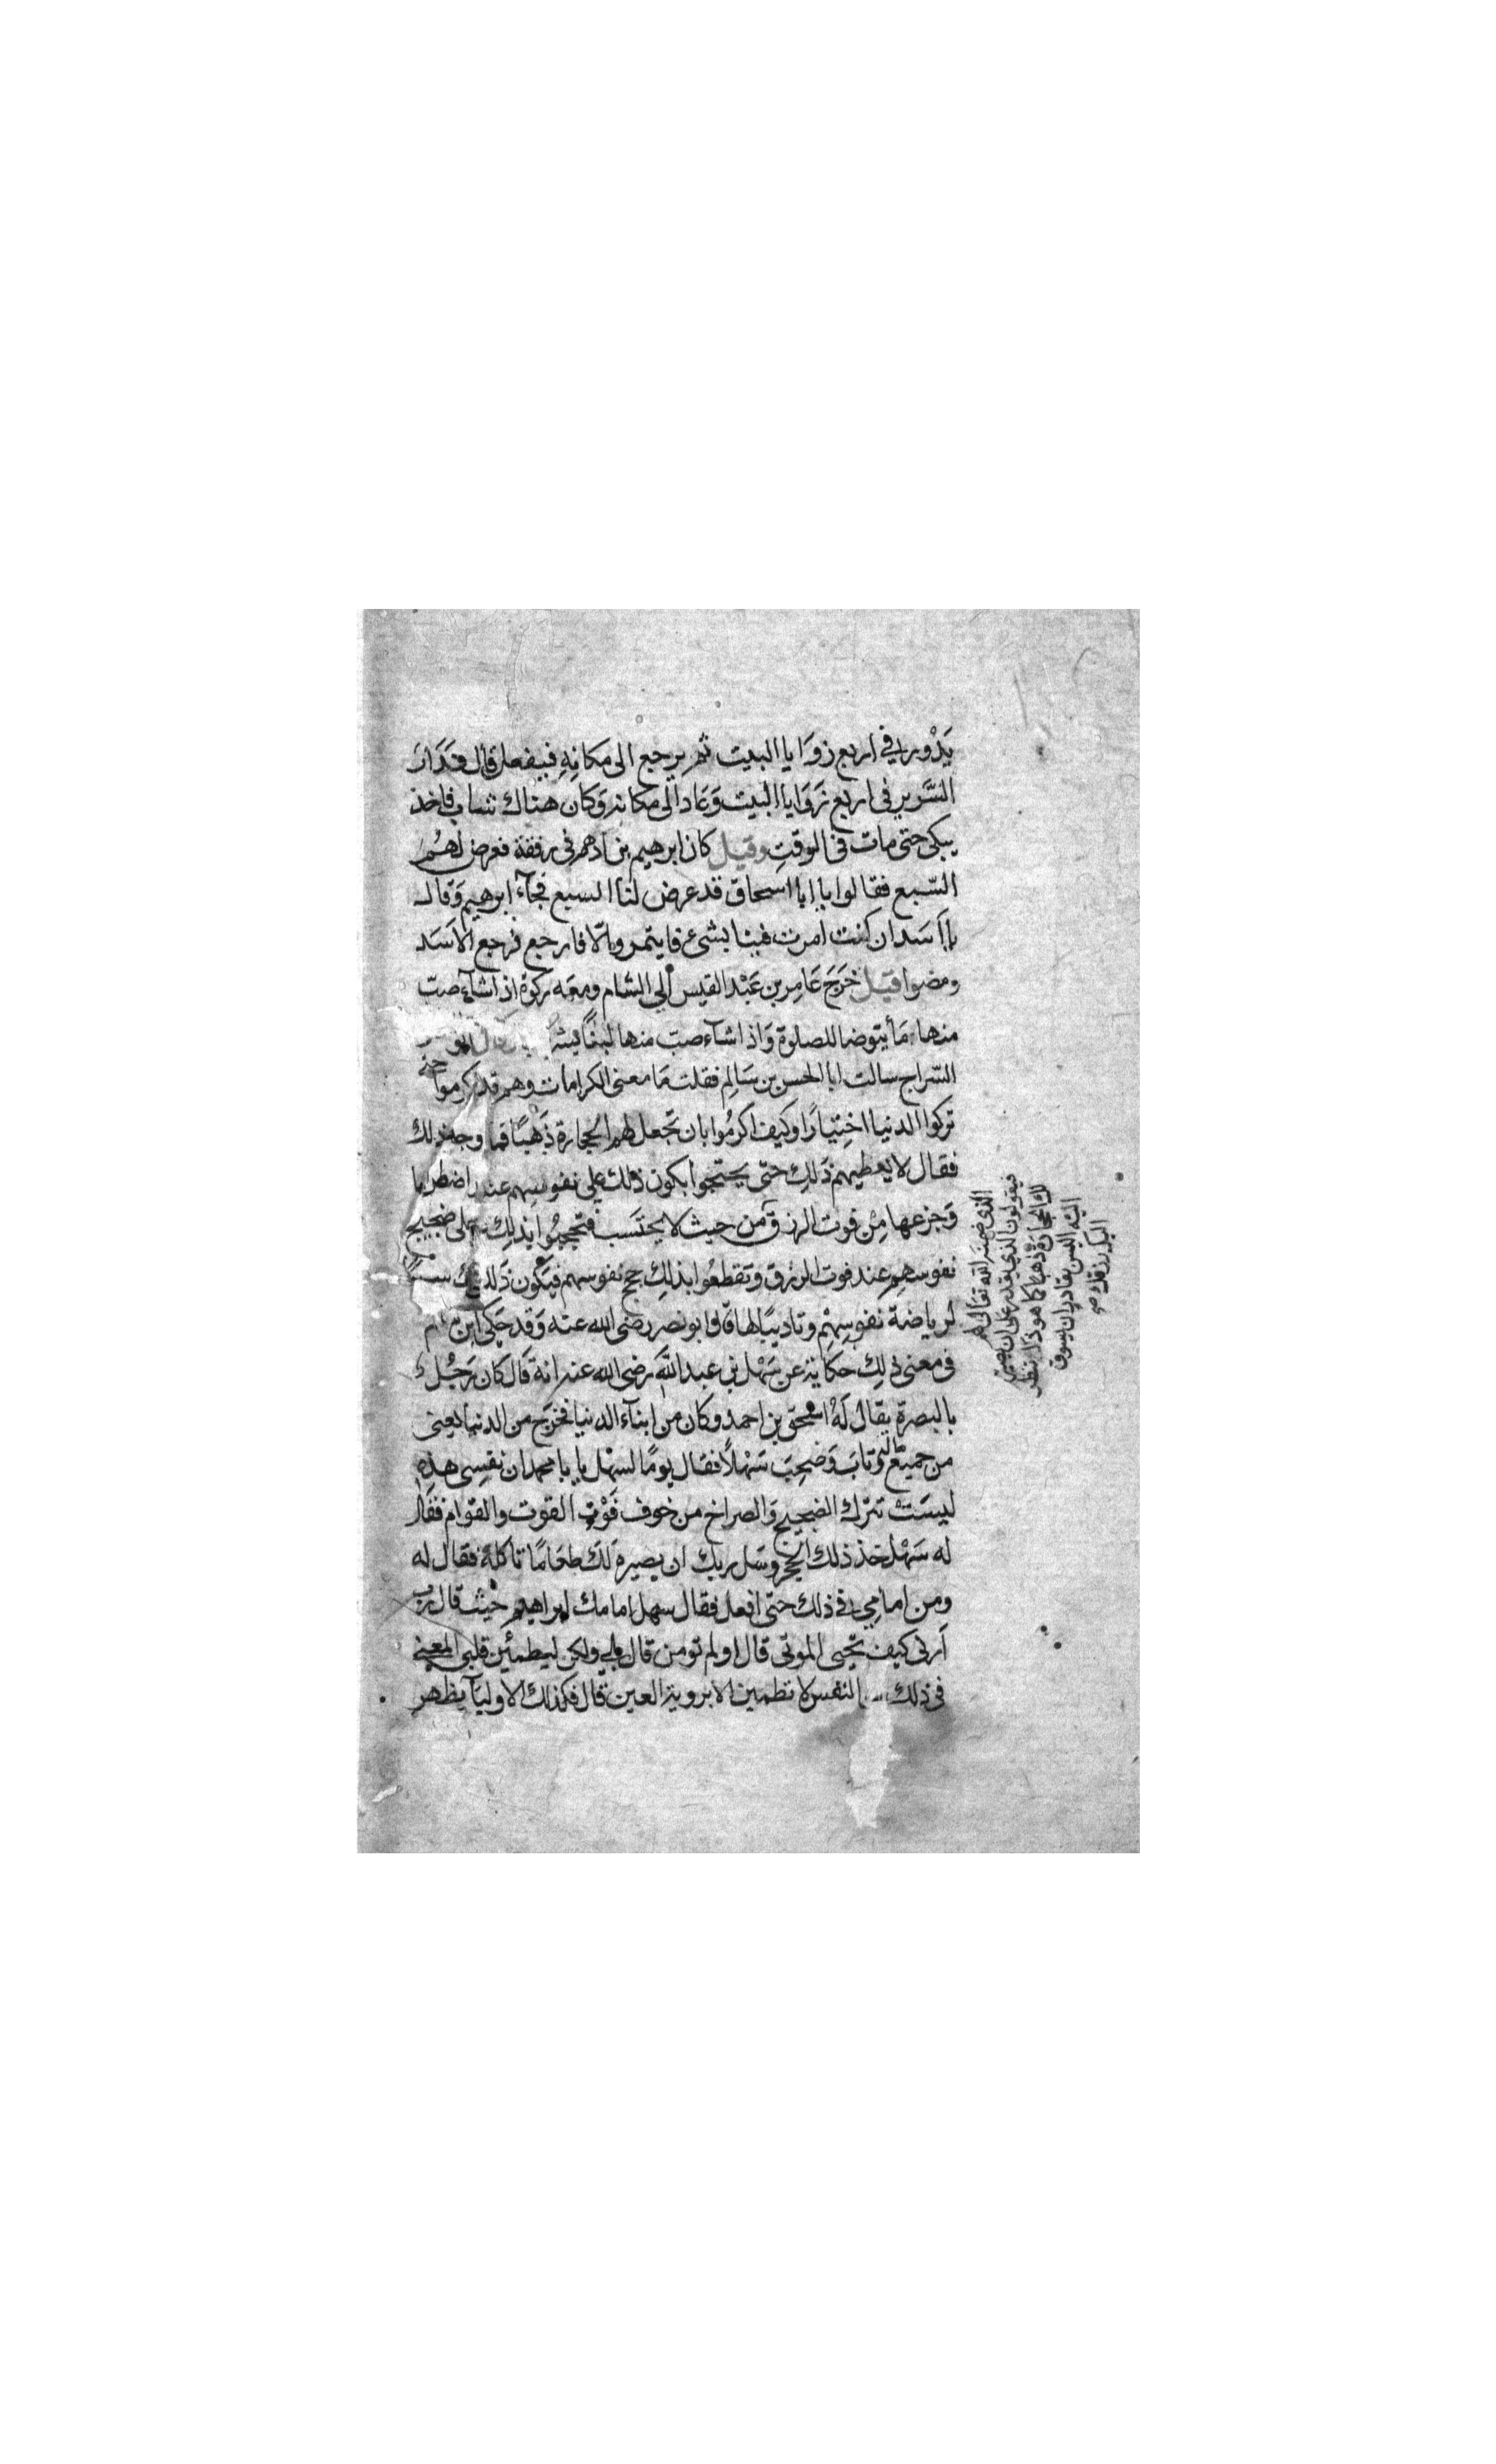 يَدُور في اربع زوَايا البيت ثم يرجع الى مكانِهِ فيفعل قال فَدَارَ
السَّرير في اربع زوَايا البيت وَعَاد الى مكانه وَكان هناك شاب فاخذ
يبكى حتى مات في الوقتِ وقيل كان ابرهيم بن ادهم في رفقة فعرض لهُم
السّبع فقالوا يا ابا اسحاق قد عرض لنا السبع فجآء ابرهيم وَقال
يا اَسَد ان كنت امرت فينا بشئ فايتمر والّا فارجع فرجع الاَسَد
ومضوا قيل خَرَجَ عَامِر بن عَبْد القيس الي الشام ومعَه ركوة اذا شآء صبّ
منها مَآ يتوضا للصلوة وَاذا شآء صبّ منها لبنًا يشر
السّراج سالت ابا الحسن بن سَالِم فقلت مَا معنى الكرامات وهم قد اكرموا حتى
تركوا الدنيا اختيَارًا وكيف اكرمُوا بان تجعل لهم الحجارة ذَهبًا فما وجه ذلك
فقال لا يعطيهم ذَلِك حتى يحتجوا بكون ذلك علي نفوسِهم عند اضطرابها
وَجزعها مِنْ فوت الرزق من حيث لا يحتَسب فتحجبُوا بذلِك على ضجيج
نفوسهم عند فوت الرزق وتقطعُوا بذلِك حج نفوسهم فيكون ذَلك
لرياضة نفوسِهم وتاديبًا لها قال ابو نصر رضى الله عنه وَقد حَكى ابن
في معنى ذلِك حكَاية عن سَهْل بن عبد اللّه رضى الله عنه انهُ قَال كان رَجُل
بالبصرة يقال لَهُ اسحق بن احمد وكان من ابنآء الدنيا فخرَج من الدنيا يعنى
من جميع مَاله وتابَ وَصَحِبَ سَهْلًا فقال يومًا لسهْل يا با محمد ان نفسِى هذِهِ
ليسَتْ تترك الضجيج وَالصراخ من خوف فَوْت القوت والقوام فقال
له سَهْل خذ ذلك الحجر وسَل ربك ان يصيرهُ لَك طعَامًا تاكله فقال له
ومن امامِي في ذلك حتى افعل فقال سهل امامك ابراهيم حيث قال ربّ
اَرنى كيف تحيى الموتى قال اولم تومن قال بلي ولكن ليطمئن قلبى المعنى
في ذلك النفس لا تطمئن الا بروية العين قال فكذلك الاوليآ يظهر
فيقولون الذي يقدر على ان يصير
لك الحجارة ذهبًا كما هو ذا تنظر
اليه اليس بقادر ان يسوق
اليك رزقك صح